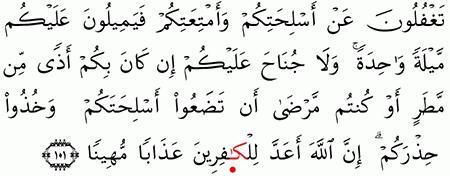 تَغْفُلُونَ عَنْ أَسْلِحَتِكُمْ وَأَمْتِعَتِكُمْ فَيَمِيلُونَ عَلَيْكُم
مَّيْلَةً وَٰحِدَةً ۚ وَلَا جُنَاحَ عَلَيْكُمْ إِن كَانَ بِكُمْ أَذًى مِّن
مَّطَرٍ أَوْ كُنتُم مَّرْضَىٰ أَن تَضَعُوٓا۟ أَسْلِحَتَكُمْ وَخُذُوا۟
حِذْرَكُمْ ۗ إِنَّ ٱللَّهَ أَعَدَّ لِلْكَـٰفِرِينَ عَذَابًا مُّهِينًا ١٠١